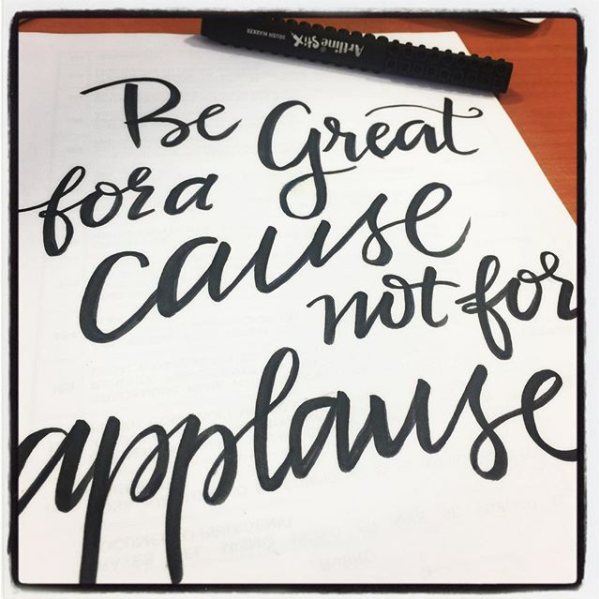 Artline Stix
BRUSH MARKER
Be Great
for a
cause
not for
applause